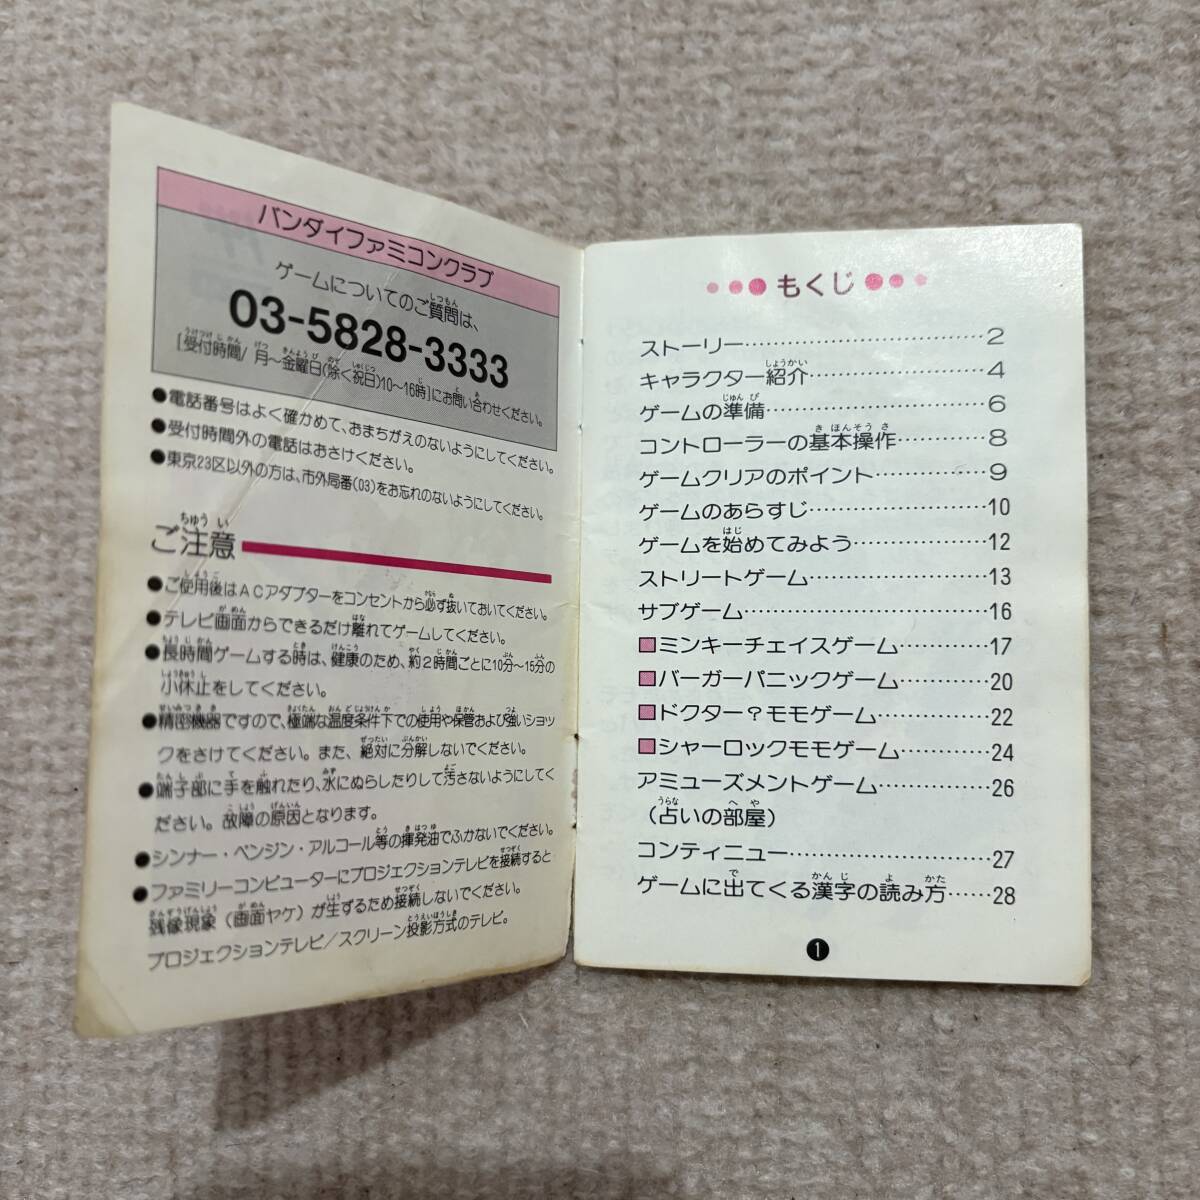 バンダイファミコンクラブ
ゲームについてのご質問は、
03-5828-3333
[受付時間/ 月～金曜日(除く祝日)10～16時]にお問い合わせください。
●電話番号はよく確かめて、おまちがえのないようにしてください。
●受付時間外の電話はおさけください。
●東京23区以外の方は、市外局番(03)をお忘れのないようにしてください。
ご注意
●ご使用後はACアダプターをコンセントから必ず抜いておいてください。
●テレビ画面からできるだけ離れてゲームしてください。
●長時間ゲームする時は、健康のため、約2時間ごとに10分～15分の
小休止をしてください。
●精密機器ですので、極端な温度条件下での使用や保管および強いショッ
クをさけてください。また、絶対に分解しないでください。
●端子部に手を触れたり、水にぬらしたりして汚さないようにしてく
ださい。故障の原因となります。
●シンナー・ベンジン・アルコール等の揮発油でふかないでください。
●ファミリーコンピューターにプロジェクションテレビを接続すると
残像現象（画面ヤケ）が生ずるため接続しないでください。
プロジェクションテレビ/スクリーン投影方式のテレビ。
もくじ
ストーリー……………………2
キャラクター紹介……………4
ゲームの準備…………………6
コントローラーの基本操作………8
ゲームクリアのポイント…………9
ゲームのあらすじ……………10
ゲームを始めてみよう…………12
ストリートゲーム……………13
サブゲーム……………………16
■ミンキーチェイスゲーム………17
■バーガーパニックゲーム………20
■ドクター？モモゲーム…………22
■シャーロックモモゲーム………24
アミューズメントゲーム…………26
（占いの部屋）
コンティニュー…………………27
ゲームに出てくる漢字の読み方……28
1